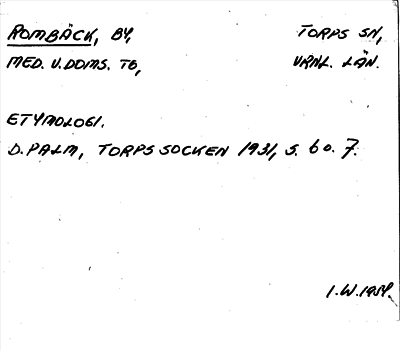 ROMBÄCK, BY, TORPS SN,
MED. U. DOMS. TG, VRNL. LÄN.
ETYMOLOGI.
D. PALM, TORPS SOCKEN 1931, S. 6 O. 7.
I.W. 1954.